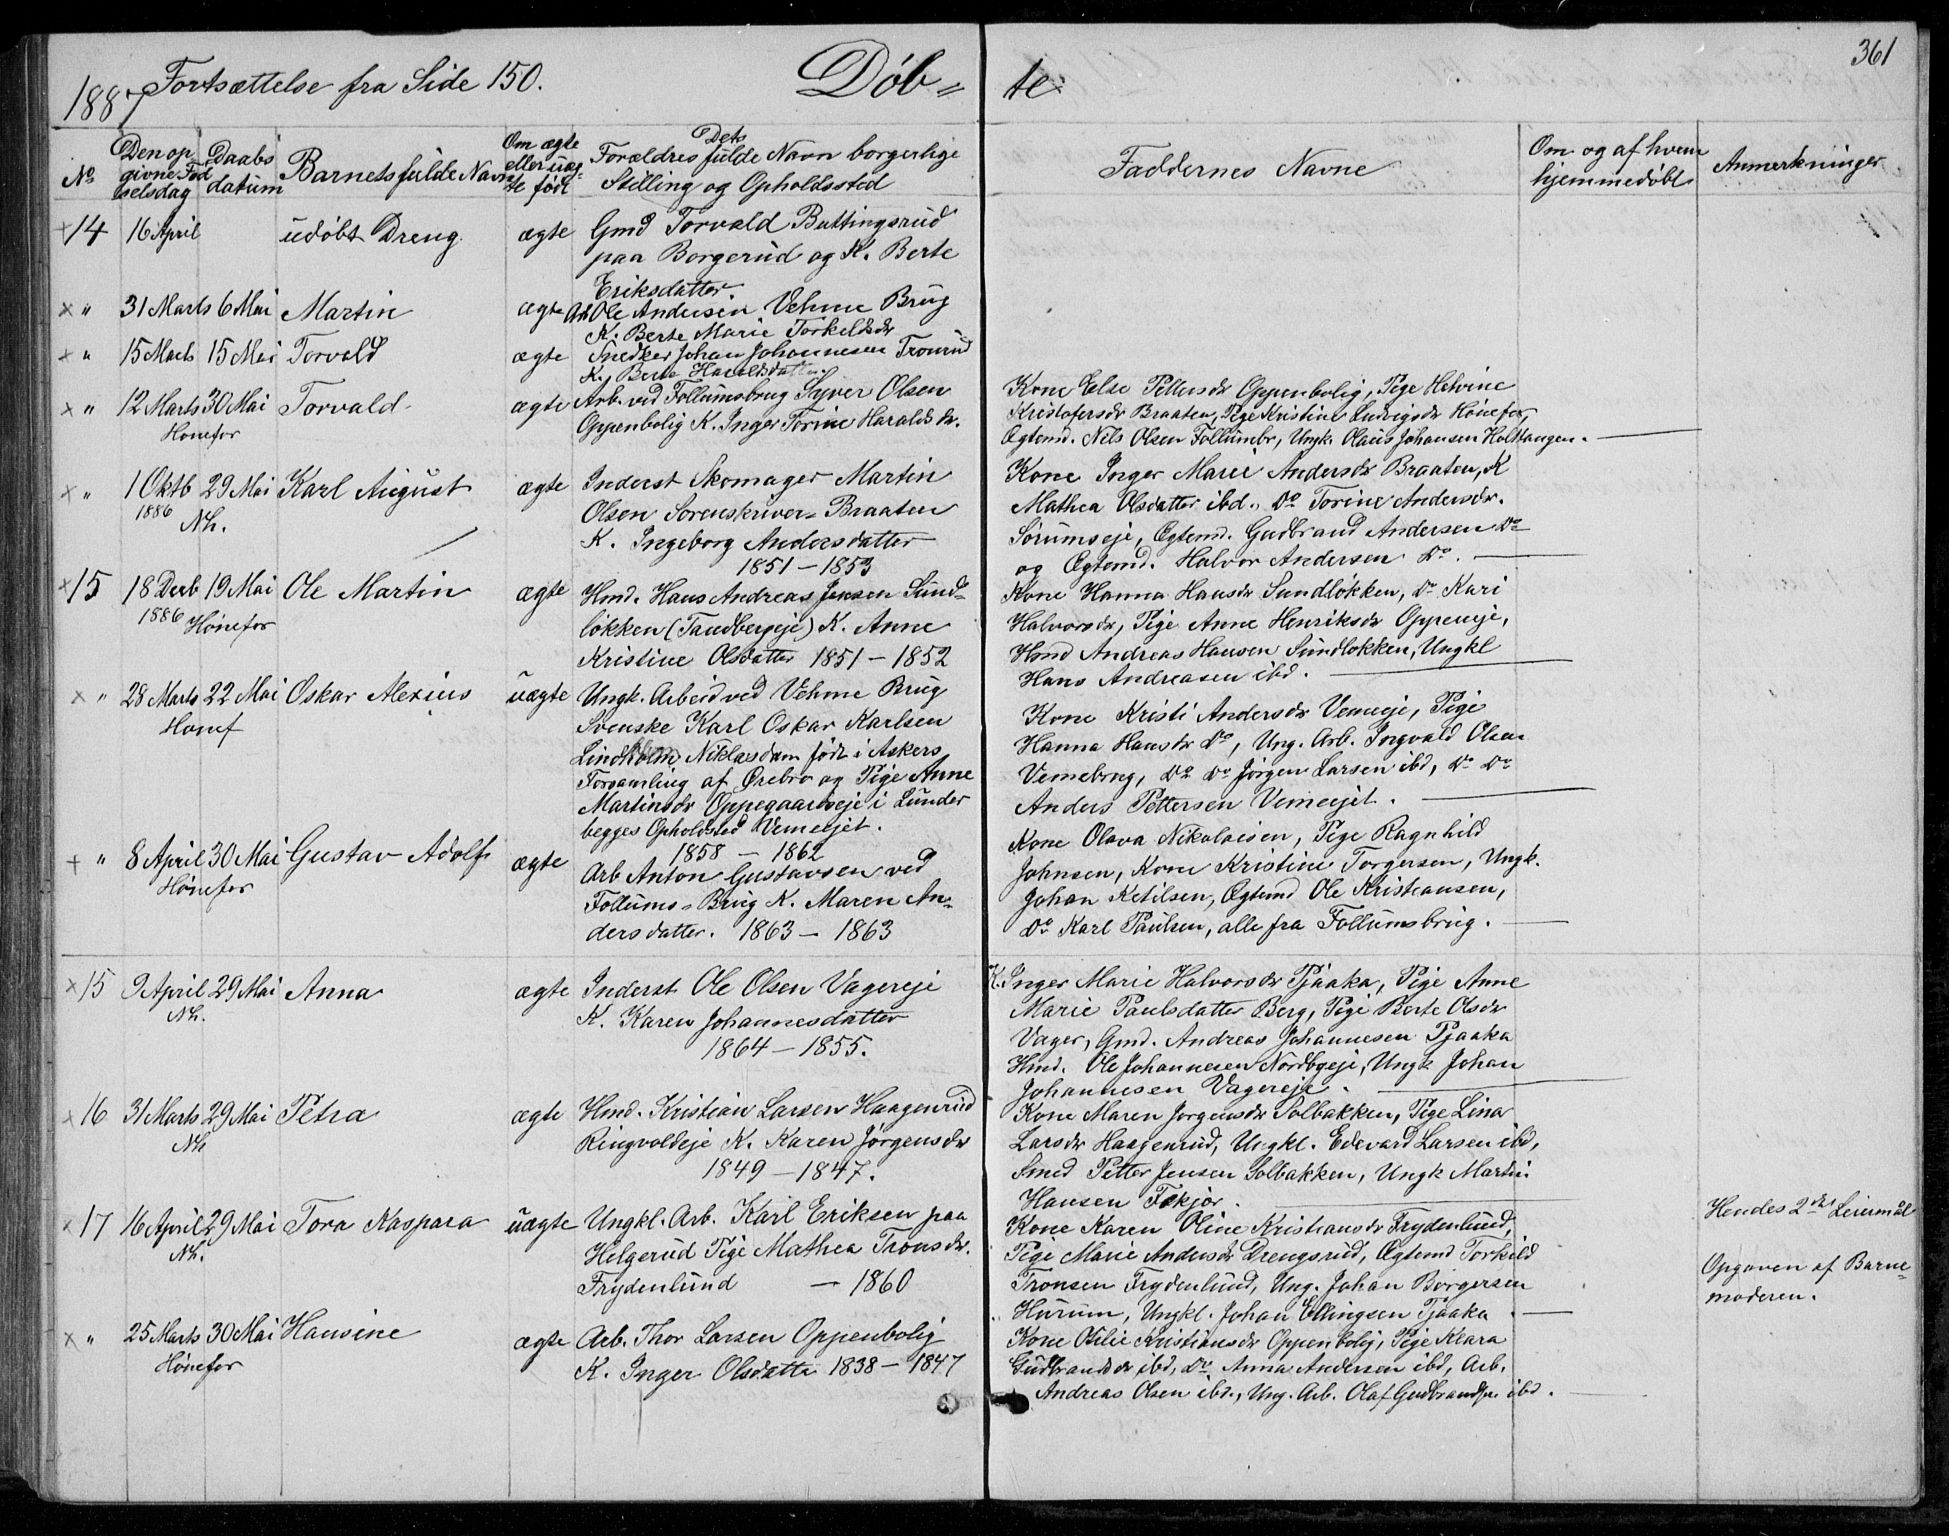 361
1887 Fortsættelse fra Side 150. Døb= te
No Den op givne Fød selsdag Daabs datum Barnets fulde Navn Om ægte eller uæg- te født Dets Forældres fulde Navn borgerlige Stilling og Opholdssted Faddernes Navne Om og af hvem hjemmedøbt Anmerkninger
× 14 16 April udøbt Dreng ægte Gmd Torvald Buttingsrud
paa Borgerud og K. Berte
Eriksdatter.
× " 31 Marts 6 Mai Martin ægte Arb Ole Andersen Vehme Brug
K. Berte Marie Torkeldsdr
× " 15 Marts 15 Mai Torvald ægte Snedker Johan Johannesen Tronrud
K. Berte Haraldsdatter.
× " 12 Marts 30 Mai Torvald ægte Arb. ved Follumsbrug Syver Olsen
Hønefos Oppenbolig K. Inger Torine Haralds dr.
Kone Else Pettersdr Oppenbolig, Pige Helvine
Kristofersdr Braaten, Pige Kristine Ludvigsdr Hønefos,
Ægtemd. Nils Olsen Follumbr, Ungk. Olaus Johansen Holttangen.
× " 1 Oktb 29 Mai Karl August ægte Inderst Skomager Martin
1886 Nh. Olsen Sorenskriver= Braaten
K. Ingeborg Andersdatter
1851 – 1853
Kone Inger Marie Andersdr Braaten, K
Mathea Olsdatter ibd., Do Torine Andersdr.
Sørumseje, Ægtemd. Gudbrand Andersen Do
og Ægtemd. Halvor Andersen Do.
× 15 18 Decb 19 Mai Ole Martin ægte Hmd. Hans Andreas Jensen Sund=
1886 Hønefos løkken (Tandbergeje) K. Anne
Kristine Olsdatter 1851 – 1852
Kone Hanna Hansdr Sundløkken, Do Kari
Halvorsdr, Pige Anne Henriksdr Oppeneje,
Hmd Andreas Hansen Sundløkken, Ungkl
Hans Andreasen ibd.
× " 28 Marts 22 Mai Oskar Alexius uægte Ungk. Arbeid ved Vehme Brug
Hønef Svenske Karl Oskar Karlsen
Lindholm Niklasdam født i Askers
Forsamling af Ørebro og Pige Anne
Martinsdr Oppegaardseje i Lunder
begges Opholdsted Vemeejet.
1858 – 1862
Kone Kristi Andersdr Vemeeje, Pige
Hanna Hansdr Do, Ung. Arb. Ingvald Olsen
Vemebrug, Do Do Jørgen Larsen ibd, Do Do
Anders Pettersen Vemeejet.
+ " 8 April 30 Mai Gustav Adolf ægte Arb Anton Gustavsen ved
Hønefos Follums= Brug K. Maren An=
dersdatter. 1863 – 1863
Kone Olava Nikolaisen, Pige Ragnhild
Johnsen, Kone Kristine Torgersen, Ungk.
Johan Ketilsen, Ægtemd Ole Kristiansen,
Do Karl Paulsen, alle fra Follumsbrug.
× 15 9 April 29 Mai Anna ægte Inderst Ole Olsen Vagereje
Nh. K. Karen Johannesdatter
1864 – 1855.
K. Inger Marie Halvorsdr Pjaaka, Pige Anne
Marie Paulsdatter Berg, Pige Berte Olsdr
Vager, Gmd. Andreas Johannesen Pjaaka
Hmd. Ole Johannesen Nordbyeje, Ungk Johan
Johannesen Vagereje.
× 16 31 Marts 29 Mai Petra ægte Hmd. Kristian Larsen Haagenrud
Nh Ringvoldeje K. Karen Jørgensdr
1849 – 1847.
Kone Maren Jorgensdr Solbakken, Pige Lina
Larsdr Haagenrud, Ungkl. Edevard Larsen ibd,
Smed Petter Jensen Solbakken, Ungk Martin
Hansen Fekjør.
× 17 16 April 29 Mai Tora Kaspara uægte Ungkl. Arb. Karl Eriksen paa
Nh. Helgerud Pige Mathea Tronsdr.
Frydenlund – 1860
Kone Karen Oline Kristiansdr Frydenlund,
Pige Marie Andersdr Drengsrud, Ægtemd Torkild
Tronsen Frydenlund, Ung. Johan Borgersen
Hurum, Ungkl. Johan Ellingsen Pjaaka.
Hendes 2det Leiermål
Opgaven af Barne=
moderen.
× " 25 Marts 30 Mai Hansine ægte Arb. Thor Larsen Oppenbolig
Hønefos K. Inger Olsdatter 1838 – 1847
Kone Otilie Kristiansdr Oppenbolig, Pige Klara
Gudbrandsdr ibd, Do Anna Andersen ibd, Arb.
Andreas Olsen ibd., Ung. Arb. Olaf Gudbrandsen ibd.